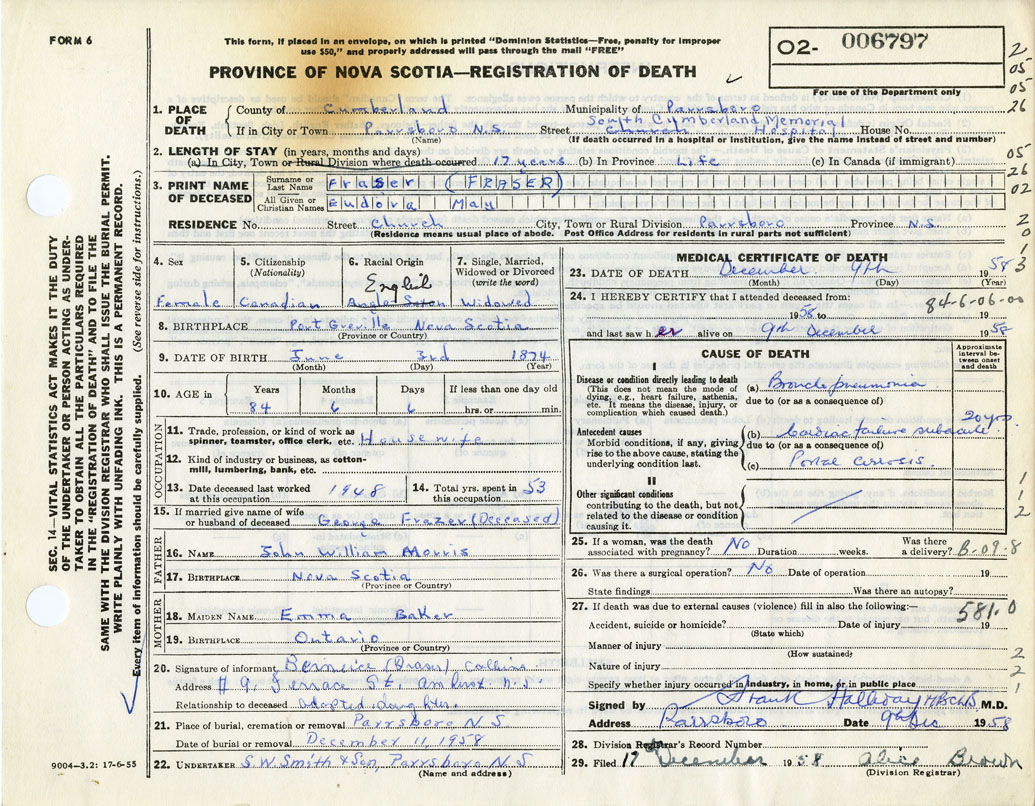 FORM 6
This form, if placed in an envelope, on which is printed "Dominion Statistics—Free, penalty for improper
use $50," and properly addressed will pass through the mail "FREE"
PROVINCE OF NOVA SCOTIA—REGISTRATION OF DEATH
02- 006797
For use of the Department only
2
05
05
26
05
26
02
2
0
3
SEC. 14—VITAL STATISTICS ACT MAKES IT THE DUTY
OF THE UNDERTAKER OR PERSON ACTING AS UNDER-
TAKER TO OBTAIN ALL THE PARTICULARS REQUIRED
IN THE "REGISTRATION OF DEATH" AND TO FILE THE
SAME WITH THE DIVISION REGISTRAR WHO SHALL ISSUE THE BURIAL PERMIT.
WRITE PLAINLY WITH UNFADING INK. THIS IS A PERMANENT RECORD.
Every item of information should be carefully supplied. (See reverse side for instructions.)
1. PLACE OF DEATH
County of Cumberland Municipality of Parrsboro
South Cumberland Memorial
If in City or Town Parrsboro N.S. Street Church Hospital House No.
(Name) (If death occurred in a hospital or institution, give the name instead of street and number)
2. LENGTH OF STAY (in years, months and days)
(a) In City, Town or Rural Division where death occurred 17 years (b) In Province Life (c) In Canada (if immigrant)
3. PRINT NAME OF DECEASED
Surname or Last Name Fraser (FRASER)
All Given or Christian Names Eudora May
RESIDENCE No. Street Church City, Town or Rural Division Parrsboro Province N.S.
(Residence means usual place of abode. Post Office Address for residents in rural parts not sufficient)
4. Sex
Female
5. Citizenship
(Nationality)
Canadian
6. Racial Origin
English
Anglo Saxon
7. Single, Married,
Widowed or Divorced
(write the word)
Widowed
8. BIRTHPLACE Port Greville Nova Scotia
(Province or Country)
9. DATE OF BIRTH June 3rd 1874
(Month) (Day) (Year)
10. AGE in Years Months Days If less than one day old
84 6 6 hrs. or min.
OCCUPATION
11. Trade, profession, or kind of work as
spinner, teamster, office clerk, etc. Housewife
12. Kind of industry or business, as cotton-
mill, lumbering, bank, etc.
13. Date deceased last worked
at this occupation 1948
14. Total yrs. spent in
this occupation 53
15. If married give name of wife
or husband of deceased George Frazer (Deceased)
FATHER
16. NAME John William Morris
17. BIRTHPLACE Nova Scotia
(Province or Country)
MOTHER
18. MAIDEN NAME Emma Baker
19. BIRTHPLACE Ontario
(Province or Country)
20. Signature of informant Berneice Collins
Address # 9, Terrace St. Amherst. N.S.
Relationship to deceased adopted daughter.
21. Place of burial, cremation or removal Parrsboro N S
Date of burial or removal December 11, 1958
22. UNDERTAKER S.W. Smith & Son, Parrsboro N S
(Name and address)
9004-3.2: 17-6-55
MEDICAL CERTIFICATE OF DEATH
23. DATE OF DEATH December 9th 1958
(Month) (Day) (Year)
24. I HEREBY CERTIFY that I attended deceased from: 84-6-06-00
1958 to 19
and last saw her alive on 9th December 1958
CAUSE OF DEATH
Approximate
interval be-
tween onset
and death
I
Disease or condition directly leading to death
(This does not mean the mode of
dying, e.g., heart failure, asthenia,
etc. It means the disease, injury, or
complication which caused death.)
(a) Bronchopneumonia
due to (or as a consequence of)
Antecedent causes
Morbid conditions, if any, giving
rise to the above cause, stating the
underlying condition last.
20 yrs.
(b) Cardiac failure subacute
due to (or as a consequence of)
(c) Portal cirrosis.
II
Other significant conditions
contributing to the death, but not
related to the disease or condition
causing it.
1
1
2
25. If a woman, was the death
associated with pregnancy? No Duration weeks. Was there
a delivery? B-09-8
26. Was there a surgical operation? No Date of operation 19
State findings Was there an autopsy?
27. If death was due to external causes (violence) fill in also the following:— 581.0
Accident, suicide or homicide? Date of injury 19
(State which)
Manner of injury
(How sustained)
Nature of injury
Specify whether injury occurred in industry, in home, or in public place
2
2
1
Signed by Frank Halladay M.D.
Address Parrsboro Date 9th Dec 1958
28. Division Registrar's Record Number
29. Filed 17 December 1958 Alice Brown
(Division Registrar)